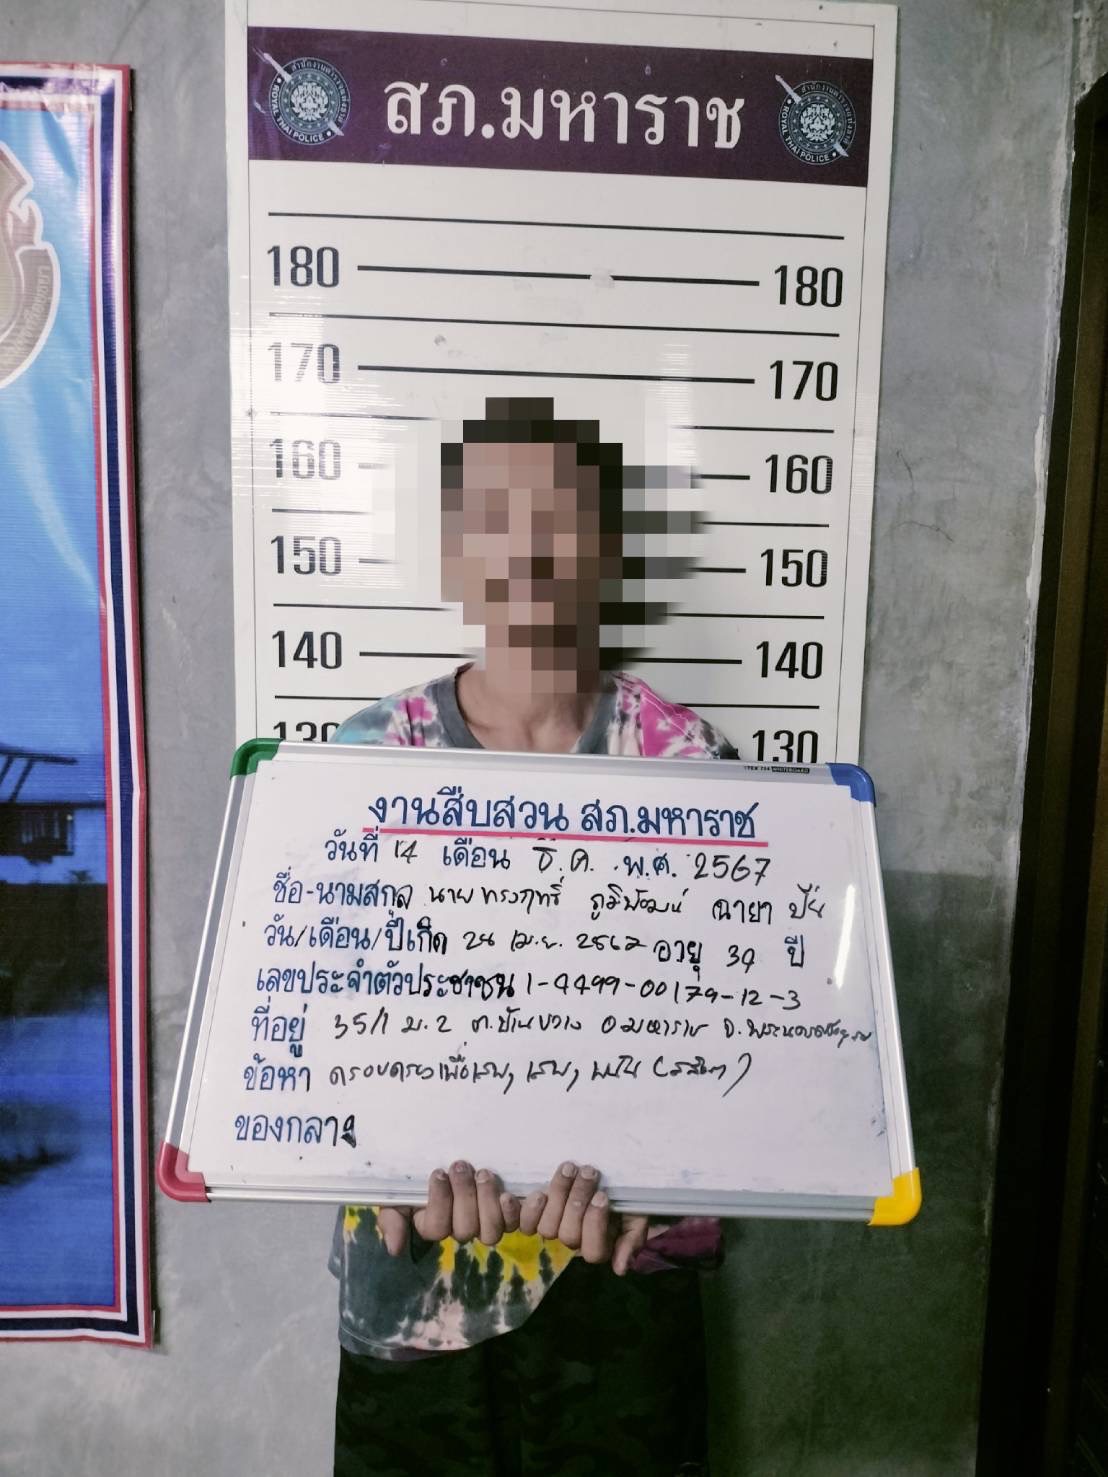 สำนักงานตำรวจแห่งชาติ
ROYAL THAI POLICE
สภ.มหาราช
สำนักงานตำรวจแห่งชาติ
ROYAL THAI POLICE
180 180
170 170
160 160
150 150
140 140
130 130
งานสืบสวน สภ.มหาราช
วันที่ 14 เดือน ธ.ค. พ.ศ. 2567
ชื่อ-นามสกุล นาย ทรงฤทธิ์ ภูมิพัฒน์ ฉายา
วัน/เดือน/ปีเกิด 24 เม.ย. อายุ 39 ปี
เลขประจำตัวประชาชน 1-4499-00179-12-3
ที่อยู่ 35/1 ม.2 ต.บ้านขวาง อ.มหาราช จ.พระนครศรีอยุธยา
ข้อหา ครอบครองเพื่อเสพ, เสพ,
ของกลาง